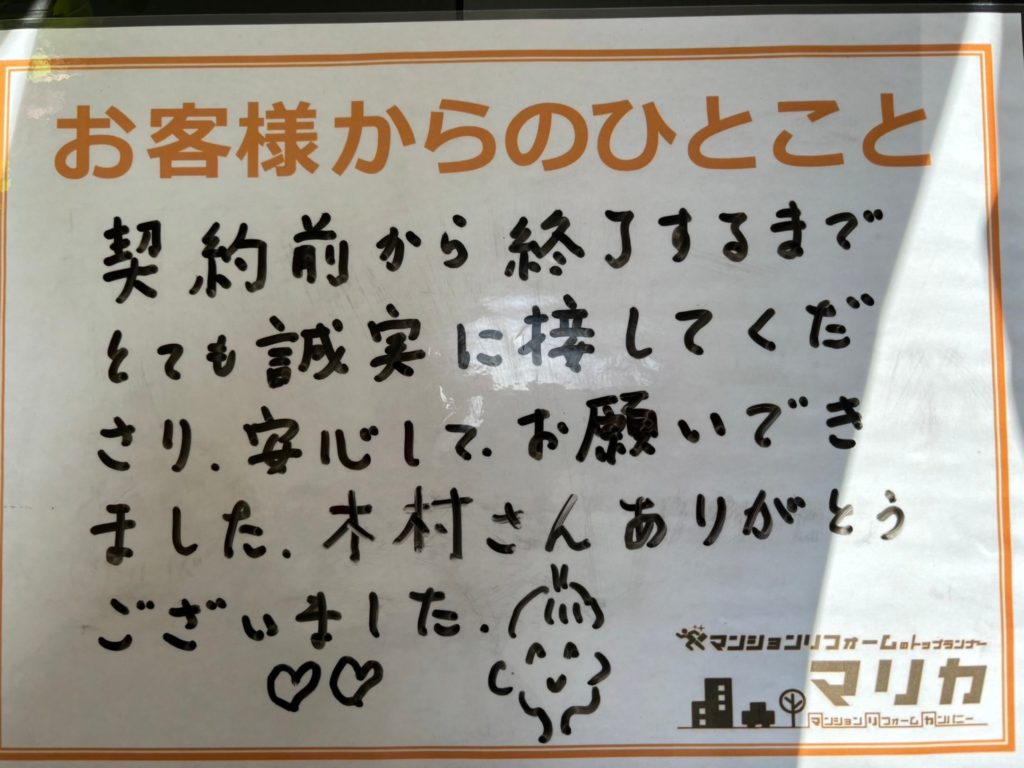 お客様からのひとこと
契約前から終了するまで
とても誠実に接してくだ
さり.安心して.お願いでき
ました.木村さんありがとう
ございました.
マンションリフォームのトップランナー
マリカ
マンションリフォームカンパニー